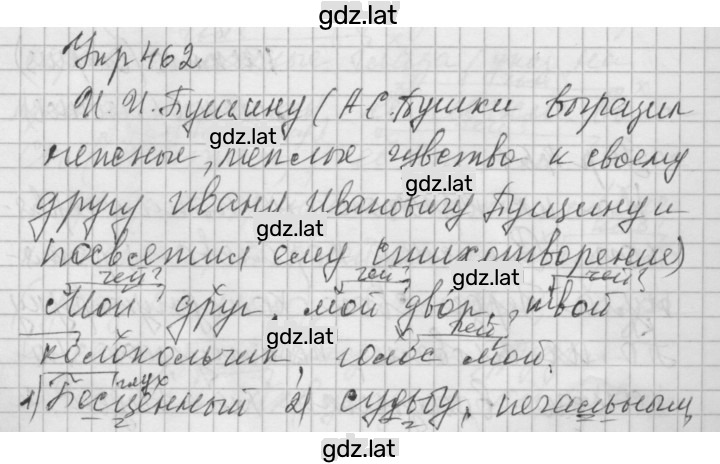 gdz.lat
Упр 462
И. И. Пущину (А.С. Пушки выразил
gdz.lat
нежные, теплые чувства к своему
gdz.lat
другу Ивану Ивановичу Пущину и
gdz.lat
посвятил ему стихотворение)
чей? чей? чей?
gdz.lat
Мой друг, мой двор, твой
чей?
колокольчик, голос мой.
gdz.lat
глух
1) Бесценный 2) судьбу, печальным,
gdz.lat